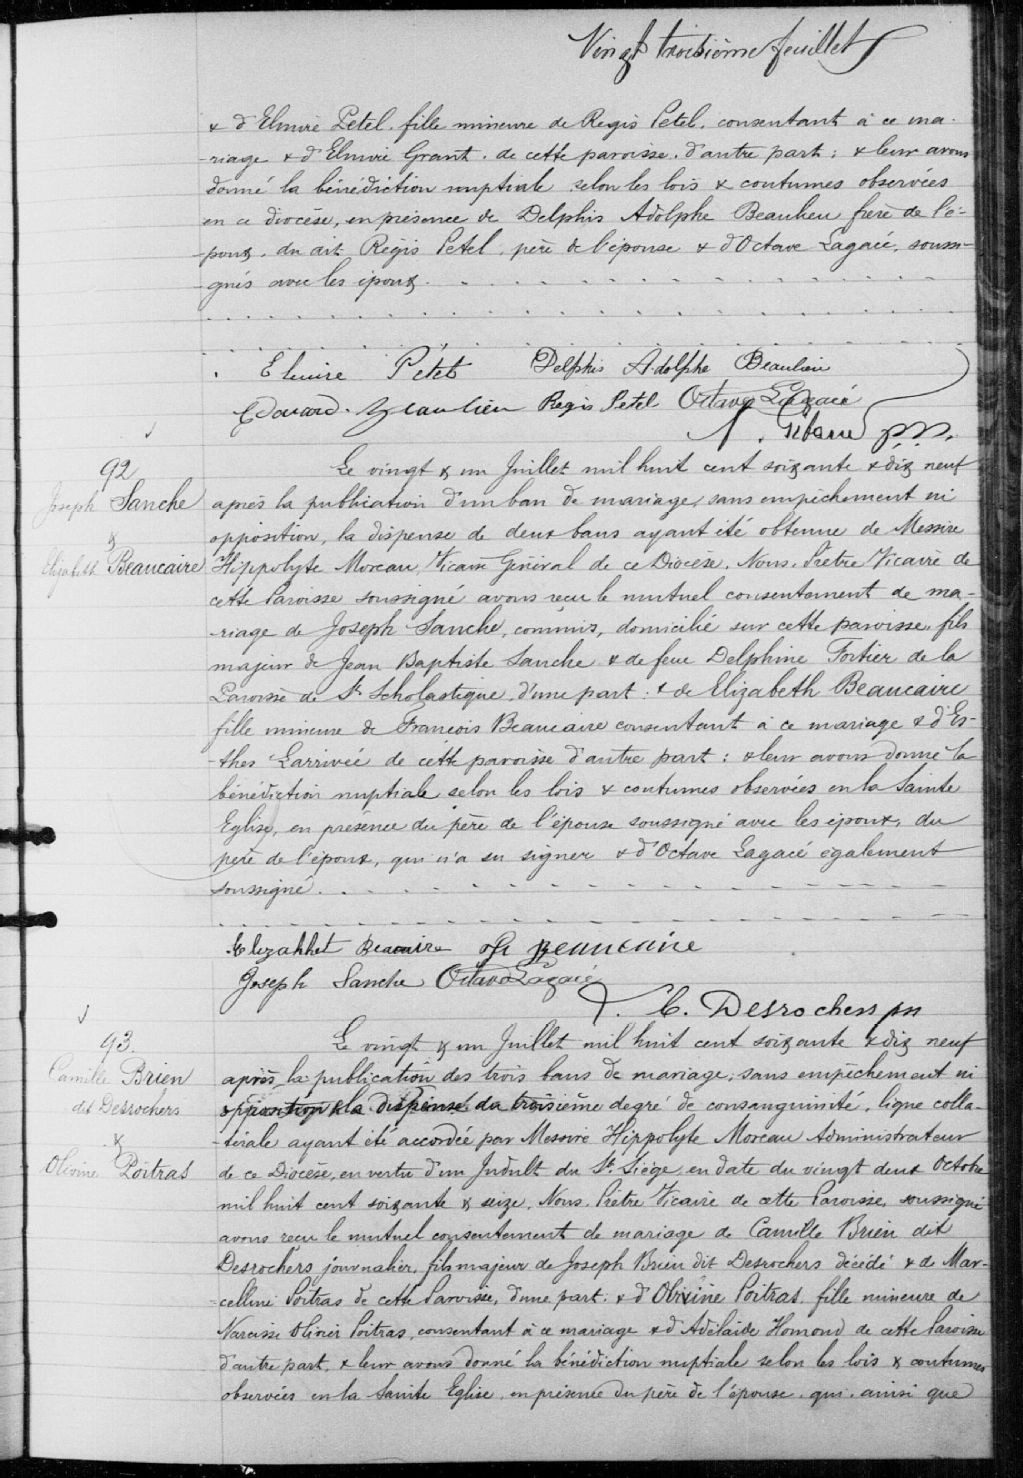 Vingt troisième feuillet
& d'Elmire Petel, fille mineure de Regis Petel, consentant à ce ma-
-riage & d'Elmire Grant, de cette paroisse, d'autre part; & leur avons
donné la bénédiction nuptiale selon les lois & coutumes observées
en ce diocèse, en présence de Delphis Adolphe Beaulieu frère de l'é-
-poux, du dit Régis Petel, père de l'épouse & d'Octave Lagacé, soussi-
-gnés avec les époux.
Elmire Pétel Delphis Adolphe Beaulieu
Edouard Beaulieu Regis Petel Octave Lagacé
ptre
92
Joseph Sanche
&
Elizabeth Beaucaire
Le vingt & un Juillet mil huit cent soixante & dix neuf
après la publication d'un ban de mariage, sans empêchement ni
opposition, la dispense de deux bans ayant été obtenue de Messire
Hippolyte Moreau, Vicaire Général de ce Diocèse, Nous, Prêtre Vicaire de
cette Paroisse soussigné avons reçu le mutuel consentement de ma-
-riage de Joseph Sanche, commis, domicilié sur cette paroisse, fils
majeur de Jean Baptiste Sanche & de feue Delphine Fortier de la
Paroisse de St Scholastique, d'une part: & de Elizabeth Beaucaire
fille mineure de François Beaucaire consentant à ce mariage & d'Es-
-ther Larrivée de cette paroisse d'autre part: & leur avons donné la
bénédiction nuptiale selon les lois & coutumes observées en la Sainte
Eglise, en présence du père de l'épouse soussigné avec les époux, du
père de l'époux, qui n'a su signer & d'Octave Lagacé également
soussigné.
Elezahbet Beaucaire Beaucaire
Joseph Sanche Octave Lagacé
C. Desrochers
93.
Camille Brien
dit Desrochers
&
Olivine Poitras
Le vingt & un Juillet mil huit cent soixante & dix neuf
après la publication des trois bans de mariage, sans empêchement ni
opposition & la dispense du troisième degré de consanguinité, ligne colla-
-térale ayant été accordée par Messire Hippolyte Moreau Administrateur
de ce Diocèse, en vertu d'un Indult du St. Siège, en date du vingt deux Octobre
mil huit cent soixante & seize, Nous, Prêtre Vicaire de cette Paroisse, soussigné
avons reçu le mutuel consentement de mariage de Camille Brien dit
Desrochers journalier, fils majeur de Joseph Brien dit Desrochers décédé & de Mar-
-celline Poitras de cette Paroisse, d'une part: & d'Olivine Poitras, fille mineure de
Narcisse Olivier Poitras, consentant à ce mariage & d'Adélaide Homond de cette Paroisse
d'autre part, & leur avons donné la bénédiction nuptiale selon les lois & coutumes
observées en la Sainte Eglise, en présence du père de l'épouse, qui, ainsi que